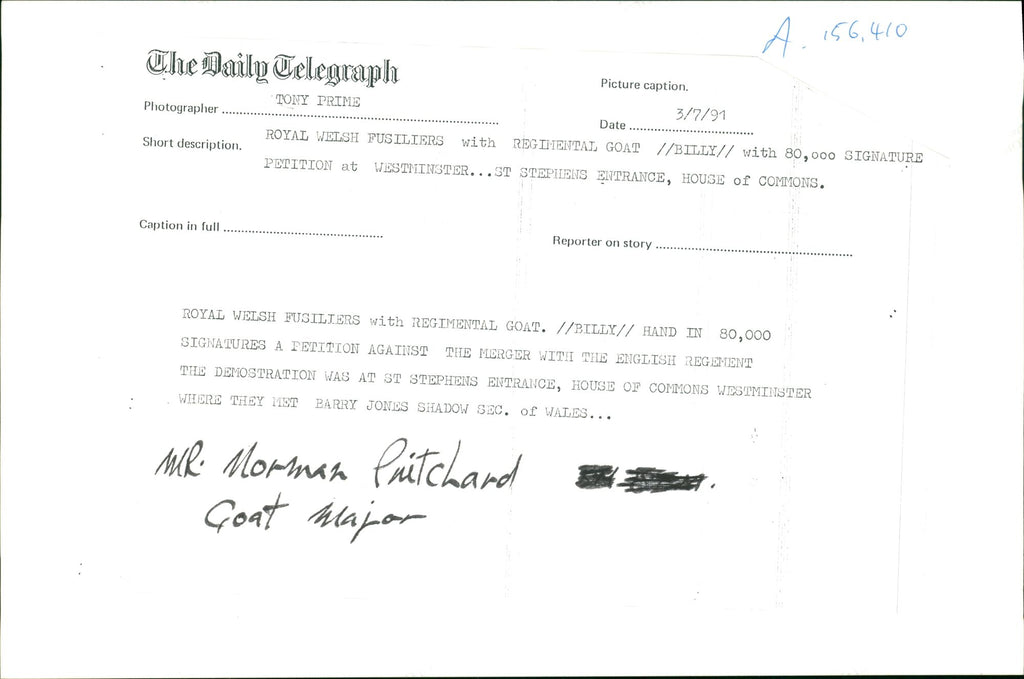 A. 156,410
The Daily Telegraph
Picture caption.
Photographer TONY PRIME
Date 3/7/91
Short description. ROYAL WELSH FUSILIERS with REGIMENTAL GOAT //BILLY// with 80,ooo SIGNATURE
PETITION at WESTMINSTER...ST STEPHENS ENTRANCE, HOUSE of COMMONS.
Caption in full
Reporter on story
ROYAL WELSH FUSILIERS with REGIMENTAL GOAT. //BILLY// HAND IN 80,000
SIGNATURES A PETITION AGAINST THE MERGER WITH THE ENGLISH REGEMENT
THE DEMOSTRATION WAS AT ST STEPHENS ENTRANCE, HOUSE OF COMMONS WESTMINSTER
WHERE THEY MET BARRY JONES SHADOW SEC. of WALES...
MR. Norman Pritchard
Goat Major